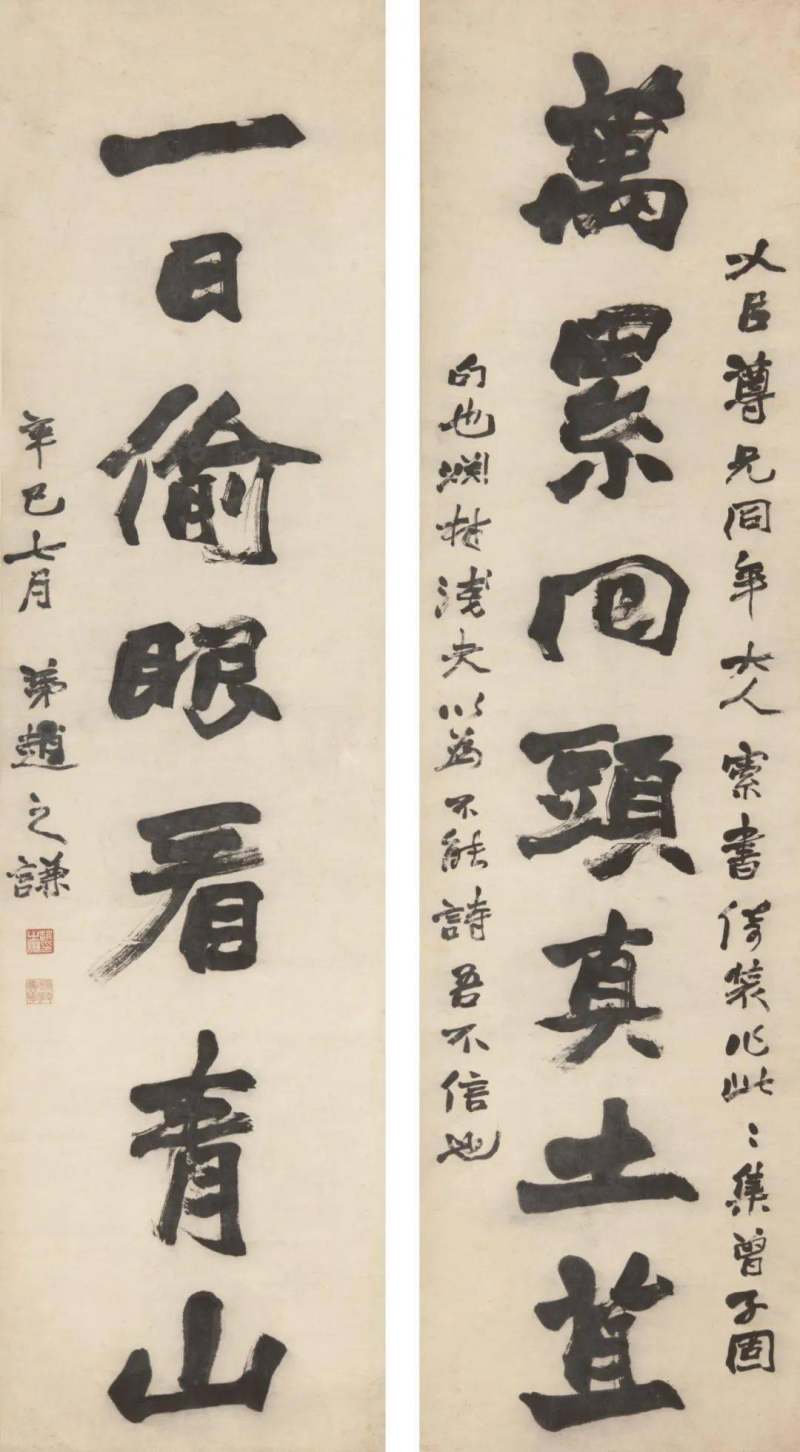 尊兄同年大人索書倚裝作此〻集曾子固
萬累回頭真土苴
句也村淺夫以為不能詩吾不信也
一日偷眼看青山
辛巳七月弟趙之謙